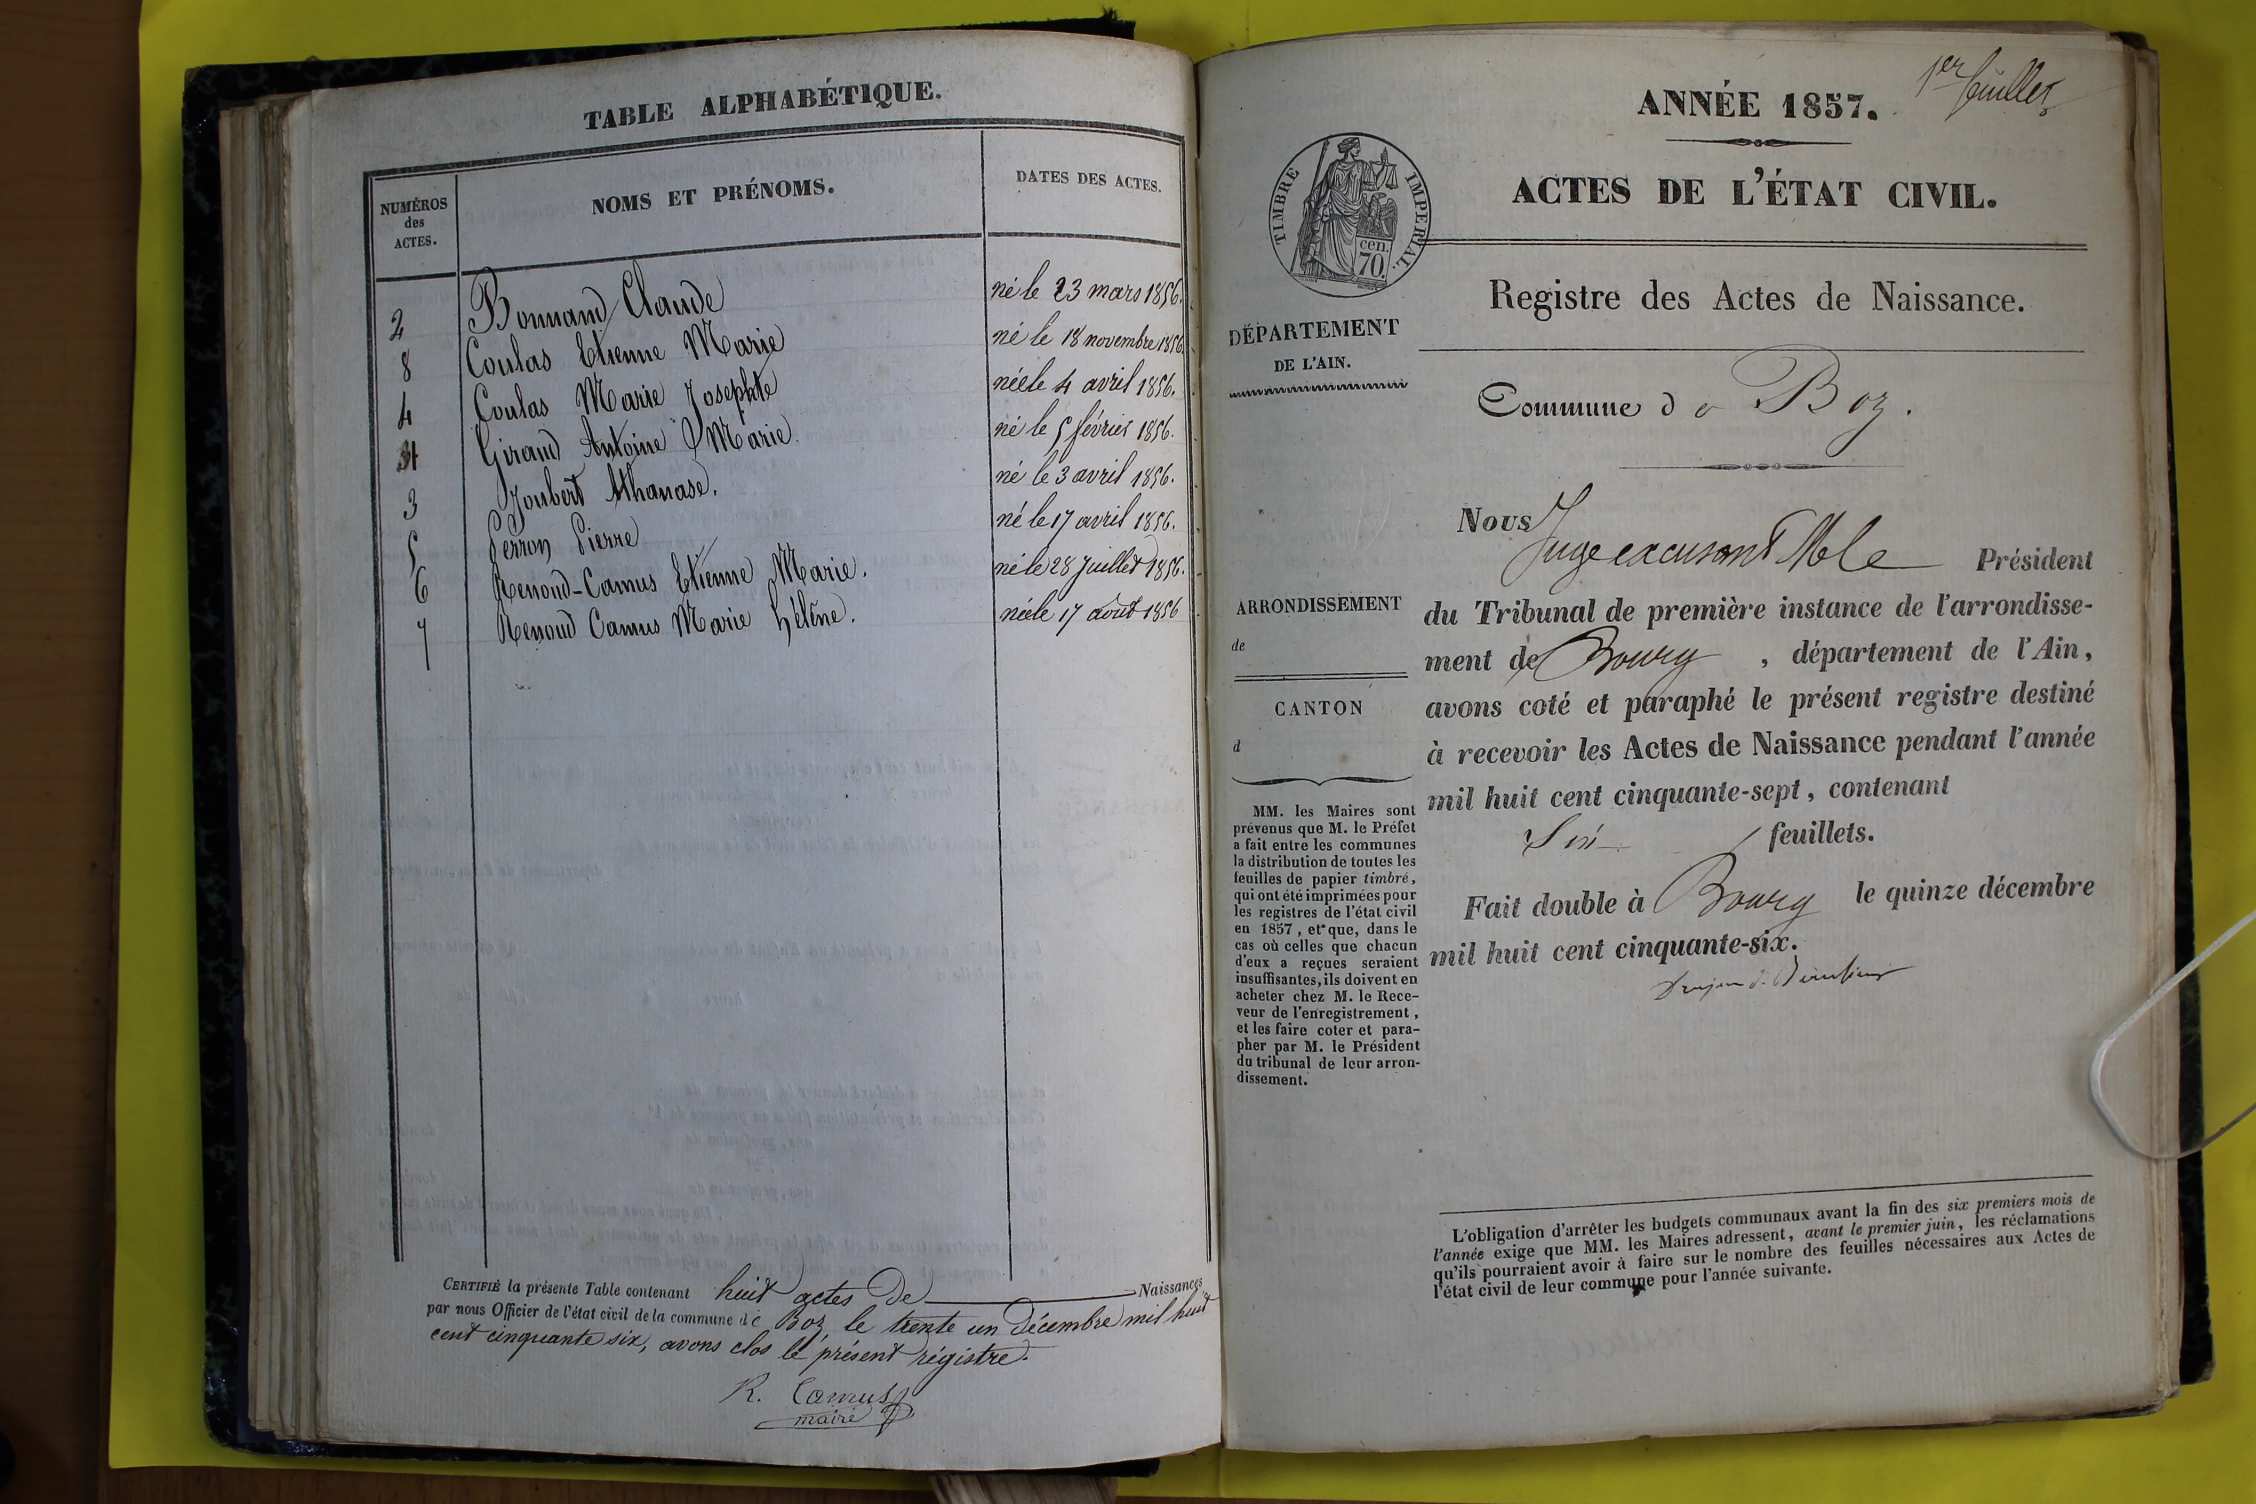 TABLE ALPHABÉTIQUE.
NUMÉROS des ACTES.
NOMS ET PRÉNOMS.
DATES DES ACTES.
2 Bonnand Claude né le 23 mars 1856.
8 Coulas Etienne Marie né le 18 novembre 1856.
4 Coulas Marie Josephte née le 4 avril 1856.
1 Giraud Antoine Marie. né le 5 février 1856.
3 Joubert Athanase. né le 3 avril 1856.
5 Perron Pierre né le 17 avril 1856.
6 Renoud-Camus Etienne Marie. né le 28 Juillet 1856.
7 Renoud Camus Marie hélêne. née le 17 août 1856
CERTIFIÉ la présente Table contenant huit actes de Naissances
par nous Officier de l'état civil de la commune de Boz, le trente un Décembre mil huit
cent cinquante six, avons clos le présent régistre.
R. Camus
maire
1er feuillet
ANNÉE 1857.
ACTES DE L'ÉTAT CIVIL.
TIMBRE IMPÉRIAL.
cen.
70.
Registre des Actes de Naissance.
DÉPARTEMENT
DE L'AIN.
Commune de Boz.
Nous Juge excusant M le Président
du Tribunal de première instance de l'arrondisse-
ment de Bourg, département de l'Ain,
avons coté et paraphé le présent registre destiné
à recevoir les Actes de Naissance pendant l'année
mil huit cent cinquante-sept, contenant
Six feuillets.
Fait double à Bourg le quinze décembre
mil huit cent cinquante-six.
ARRONDISSEMENT
de
CANTON
d
MM. les Maires sont
prévenus que M. le Préfet
a fait entre les communes
la distribution de toutes les
feuilles de papier timbré,
qui ont été imprimées pour
les registres de l'état civil
en 1857, et que, dans le
cas où celles que chacun
d'eux a reçues seraient
insuffisantes, ils doivent en
acheter chez M. le Rece-
veur de l'enregistrement,
et les faire coter et para-
pher par M. le Président
du tribunal de leur arron-
dissement.
L'obligation d'arrêter les budgets communaux avant la fin des six premiers mois de
l'année exige que MM. les Maires adressent, avant le premier juin, les réclamations
qu'ils pourraient avoir à faire sur le nombre des feuilles nécessaires aux Actes de
l'état civil de leur commune pour l'année suivante.